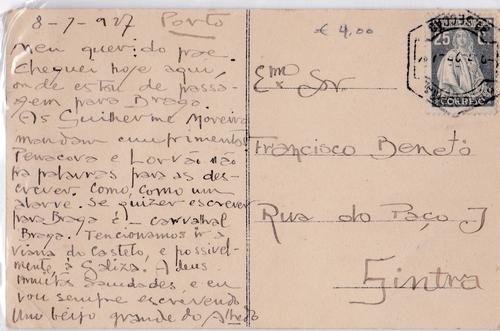 8-7-927 Porto
€ 4,00
Meu querido pae
Cheguei hoje aqui,
onde estou de passa-
gem para Braga.
Os Guilherme Moreira
mandam cumprimentos
Penacova e Lorvão não
ha palavras para as des-
crever. Como, como um
alarve. Se quizer escrever
para Braga é - carvalhal
Braga. Tencionamos ir a
Viana do Castelo, e possivel-
mente, à Galiza. Adeus
muitas saudades, e eu
vou sempre escrevendo
Um beijo grande do Alfredo
Emº Sr.
Francisco Beneto
Rua do Paço J
Sintra
25 C.
CORREIO